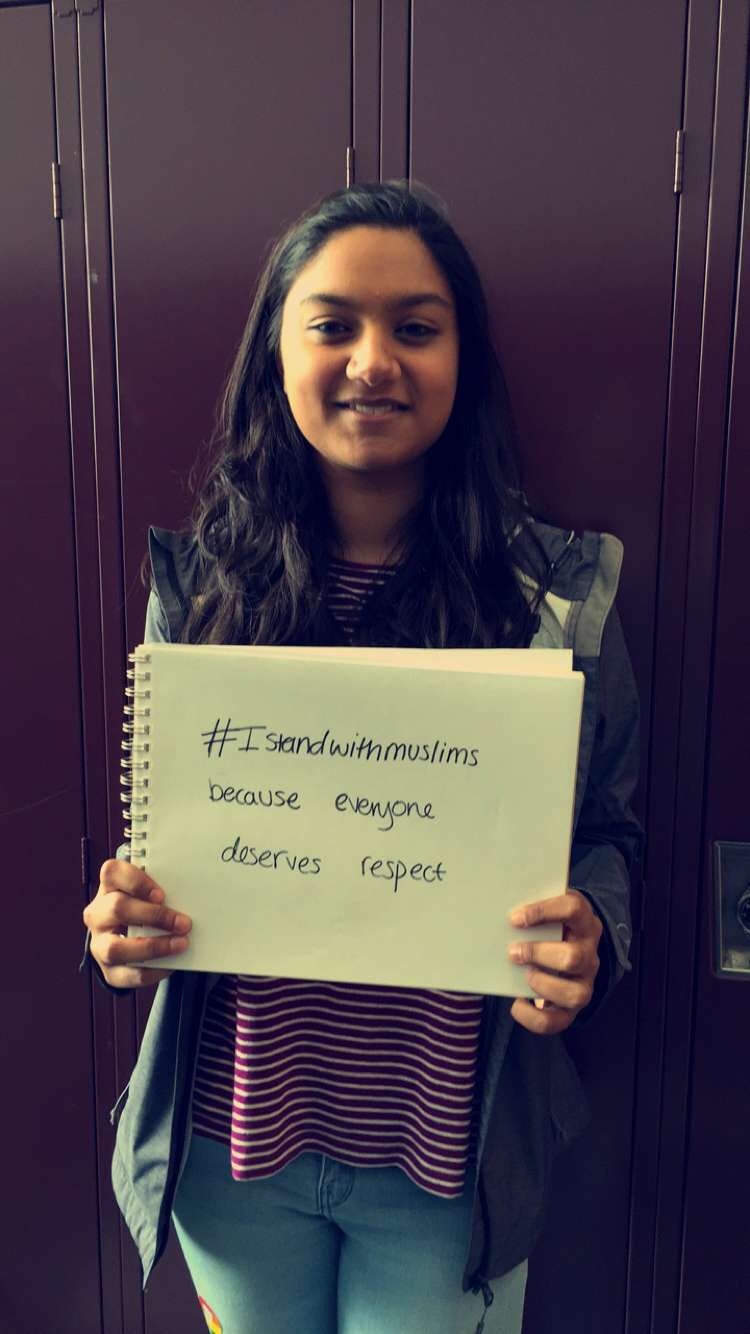 #Istandwithmuslims
because everyone
deserves respect